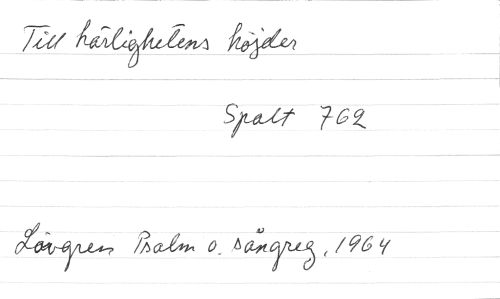 Till härlighetens höjder
Spalt 762
Lövgren Psalm o. sångreg, 1964